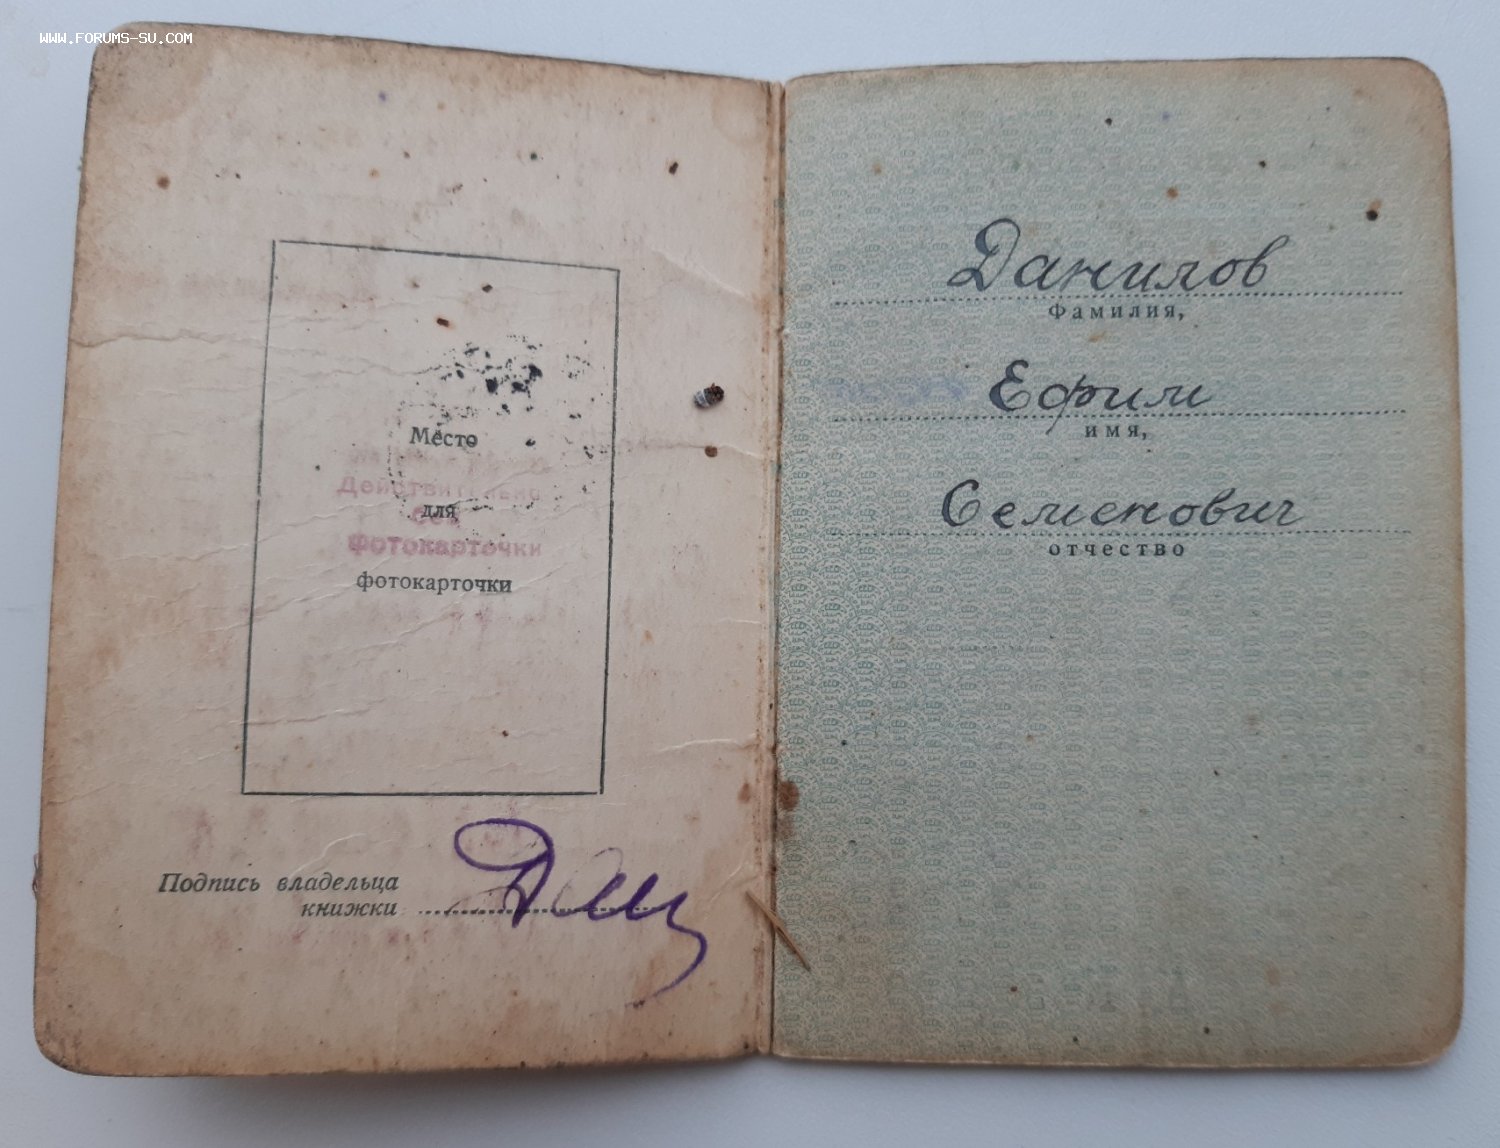 WWW.FORUMS-SU.COM
Место
Действительно
без
Фотокарточки
для
фотокарточки
Подпись владельца
книжки
Данилов
фамилия,
Ефим
имя,
Семенович
отчество